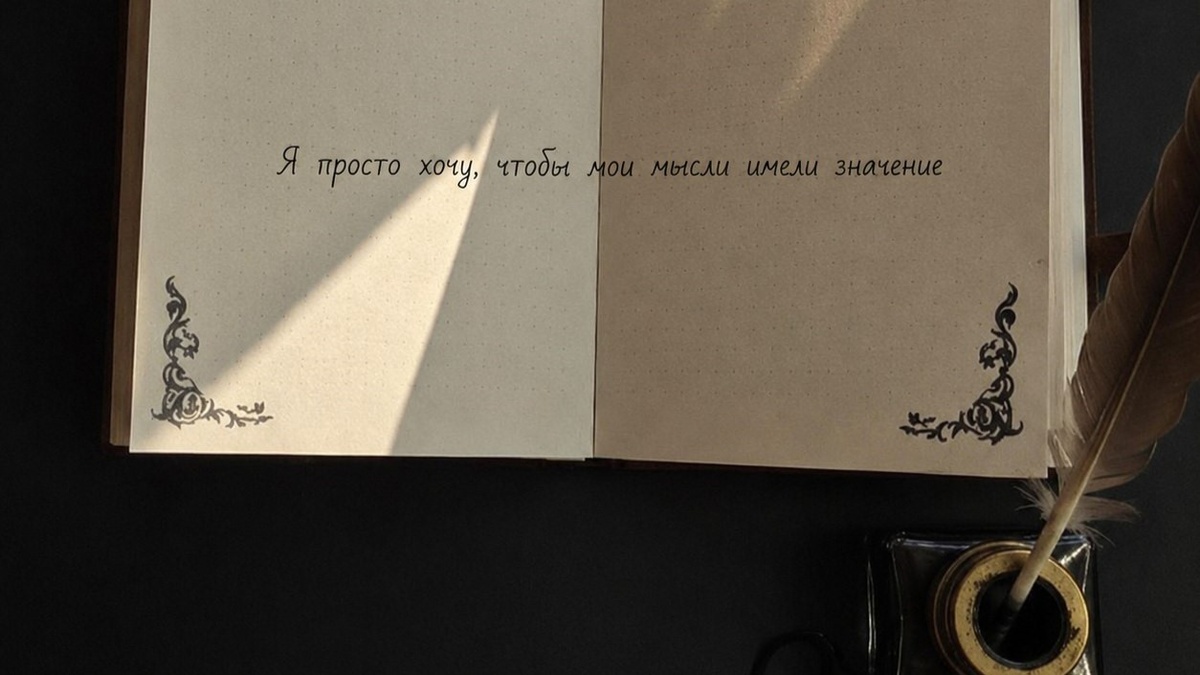 Я просто хочу, чтобы мои мысли имели значение